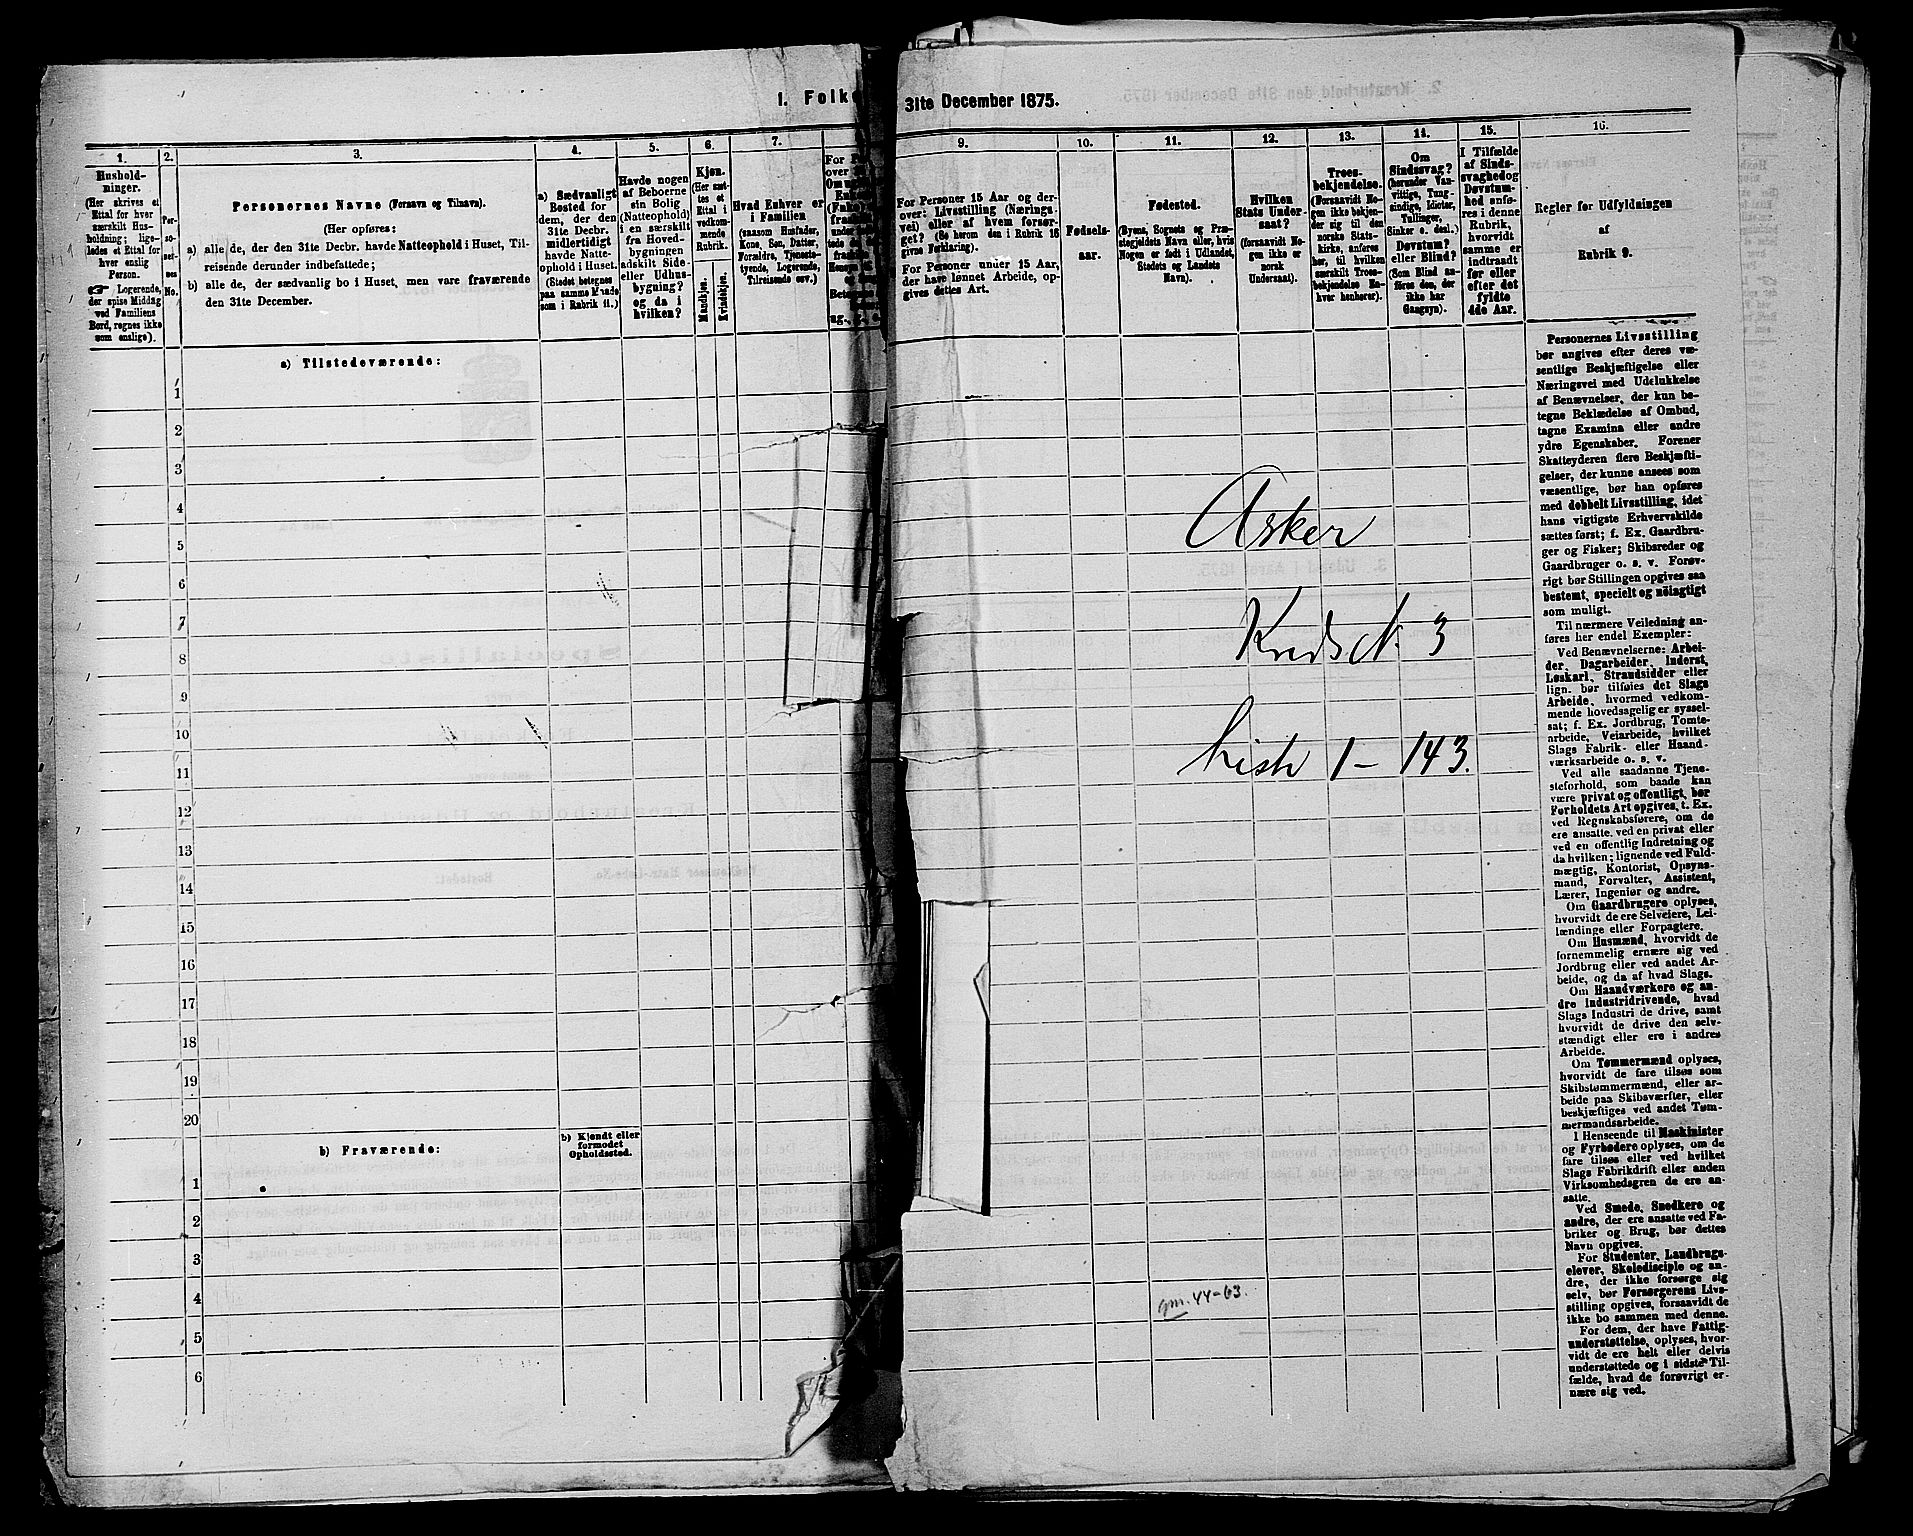 1. Folke
31te December 1875.
1.
Hushold-
ninger.
(Her skrives et
Ettal for hver
særskilt Hus-
holdning; lige-
ledes et Ettal for
hver enslig
Person.
Logerende,
der spise Middag
ved Familiens
Bord, regnes ikke
som enslige).
2.
Per-
so-
ner-
nes
No.
3.
Personernes Navne (Fornavn og Tilnavn).
(Her opføres:
a) alle de, der den 31te Decbr. havde Natteophold i Huset, Til-
reisende derunder indbefattede;
b) alle de, der sædvanlig bo i Huset, men vare fraværende
den 31te December.
4.
a) Sædvanligt
Bosted for
dem, der den
31te Decbr.
midlertidigt
havde Natte-
ophold i Huset.
(Stedet betegnes
paa samme Maade
som i Rubrik 11.)
5.
Havde nogen
af Beboerne
sin Bolig
(Natteophold)
i en særskilt
fra Hoved-
bygningen
adskilt Side-
eller Udhus-
bygning?
og da i
hvilken?
6.
Kjøn.
(Her sæt-
tes et
Ettal i
vedkom-
mende
Rubrik.
Mandkjøn.
Kvindekjøn.
7.
Hvad Enhver er
i Familien
(saasom Husfader,
Kone, Søn, Datter,
Forældre, Tjeneste-
tyende, Logerende,
Tilreisende osv.)
9.
For Personer 15 Aar og der-
over: Livsstilling (Nærings-
vei) eller af hvem forsør-
get? (Se herom den i Rubrik 16
givne Forklaring).
For Personer under 15 Aar,
der have lønnet Arbeide, op-
gives dettes Art.
10.
Fødsels-
aar.
11.
Fødested.
(Byens, Sognets og Præ-
stegjeldets Navn eller, hvis
Nogen er født i Udlandet,
Stedets og Landets
Navn).
12.
Hvilken
Stats Under-
saat?
(forsaavidt No-
gen ikke er
norsk
Undersaat).
13.
Troes-
bekjendelse.
(Forsaavidt No-
gen ikke bekjen-
der sig til den
norske Stats-
kirke, anføres
her, til hvilken
særskilt Troes-
bekjendelse En-
hver henhører).
14.
Om
Sindssvag?
(herunder Van-
vittige, Tung-
sindige, Idioter,
Tullinger,
Sinker o. desl.)
Døvstum?
eller Blind?
(Som Blind an-
føres den, der
ikke har
Gangsyn).
15.
I Tilfælde
af Sinds-
svaghed og
Døvstum-
hed anfø-
res i denne
Rubrik,
hvorvidt
samme er
indtraadt
før eller
efter det
fyldte
4de Aar.
16.
Regler for Udfyldningen
af
Rubrik 9.
a) Tilstedeværende:
1
2
3
4
5
6
7
8
9
10
11
12
13
14
15
16
17
18
19
20
b) Fraværende:
b) Kjendt eller
formodet
Opholdssted.
1
2
3
4
5
6
Asker
Kreds N. 3
Liste 1 - 143.
gm. 44-63.
Personernes Livsstilling
bør angives efter deres væ-
sentlige Beskjæftigelse eller
Næringsvei med Udelukkelse
af Benævnelser, der kun be-
tegne Beklædelse af Ombud,
tagne Examina eller andre
ydre Egenskaber. Forener
Skatteyderen flere Beskjæfti-
gelser, der kunne ansees som
væsentlige, bør han opføres
med dobbelt Livsstilling, idet
hans vigtigste Erhvervskilde
sættes først; f. Ex. Gaardbru-
ger og Fisker; Skibsreder og
Gaardbruger o. s. v. Forøv-
rigt bør Stillingen opgives saa
bestemt, specielt og nøiagtigt
som muligt.
Til nærmere Veiledning an-
føres her endel Exempler:
Ved Benævnelserne: Arbei-
der, Dagarbeider, Inderst,
Løskarl, Strandsidder eller
lign. bør tilføies det Slags
Arbeide, hvormed vedkom-
mende hovedsagelig er syssel-
sat; f. Ex. Jordbrug, Tomte-
arbeide, Veiarbeide, hvilket
Slags Fabrik- eller Haand-
værksarbeide o. s. v.
Ved alle saadanne Tjene-
steforhold, som baade kan
være privat og offentligt, bør
Forholdets Art opgives, t. Ex.
ved Regnskabsførere, om de
ere ansatte ved en privat eller
ved en offentlig Indretning og
da hvilken; lignende ved Fuld-
mægtig, Kontorist, Opsyns-
mand, Forvalter, Assistent,
Lærer, Ingeniør og andre.
Om Gaardbrugere oplyses,
hvorvidt de ere Selveiere, Lei-
lændinge eller Forpagtere.
Om Husmænd, hvorvidt de
fornemmelig ernære sig ved
Jordbrug eller ved andet Ar-
beide, og da af hvad Slags.
Om Haandværkere og an-
dre Industridrivende, hvad
Slags Industri de drive, samt
hvorvidt de drive den selv-
stændigt eller ere i andres
Arbeide.
Om Tømmermænd oplyses,
hvorvidt de fare tilsøs som
Skibstømmermænd, eller ar-
beide paa Skibsværfter, eller
beskjæftiges ved andet Tøm-
mermandsarbeide.
I Henseende til Maskinister
og Fyrbødere oplyses, om de
fare tilsøs eller ved hvilket
Slags Fabrikdrift eller anden
Virksomhedsgren de ere an-
satte.
Ved Smede, Snedkere og
andre, der ere ansatte ved Fa-
briker og Brug, bør dettes
Navn opgives.
For Studenter, Landbrugs-
elever, Skoledisciple og an-
dre, der ikke forsørge sig
selv, bør Forsørgerens Livs-
stilling opgives, forsaavidt de
ikke bo sammen med denne.
For dem, der have Fattig-
understøttelse, oplyses, hvor-
vidt de ere helt eller delvis
understøttede og i sidste Til-
fælde, hvad de forøvrigt er-
nære sig ved.